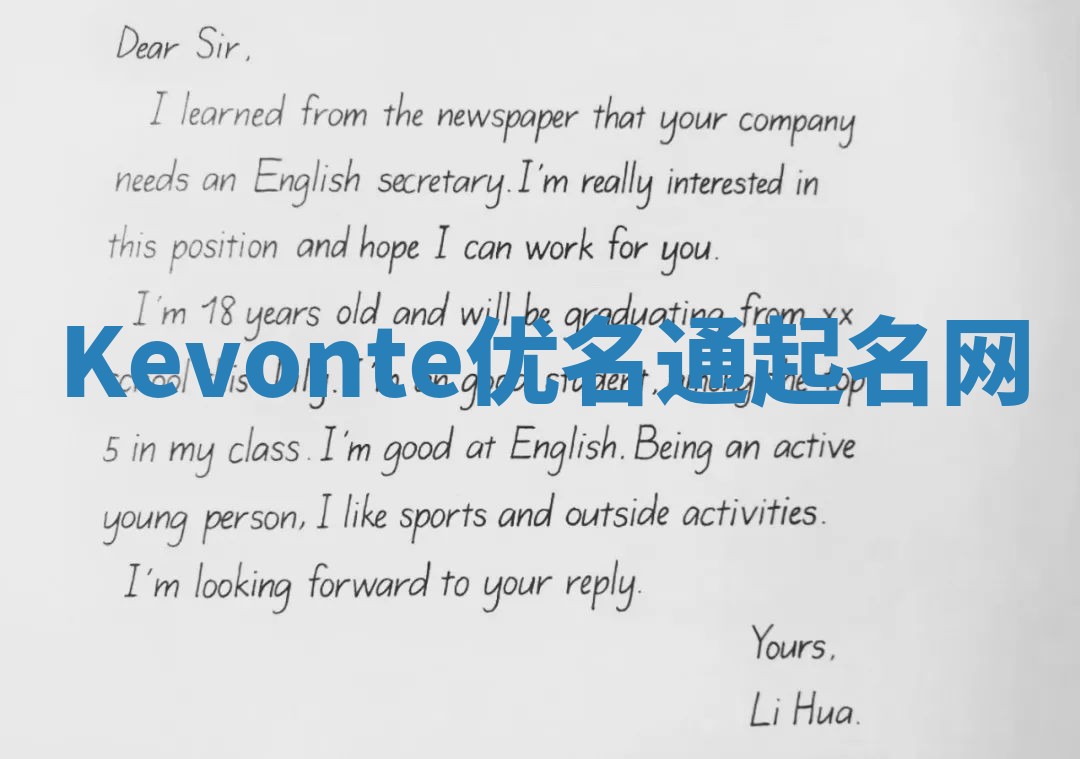 Dear Sir,
I learned from the newspaper that your company
needs an English secretary. I'm really interested in
this position and hope I can work for you.
I'm 18 years old and will be graduating from xx
Kevonte优名通起名网
school this July. I'm an good student, among the top
5 in my class. I'm good at English. Being an active
young person, I like sports and outside activities.
I'm looking forward to your reply.
Yours,
Li Hua.